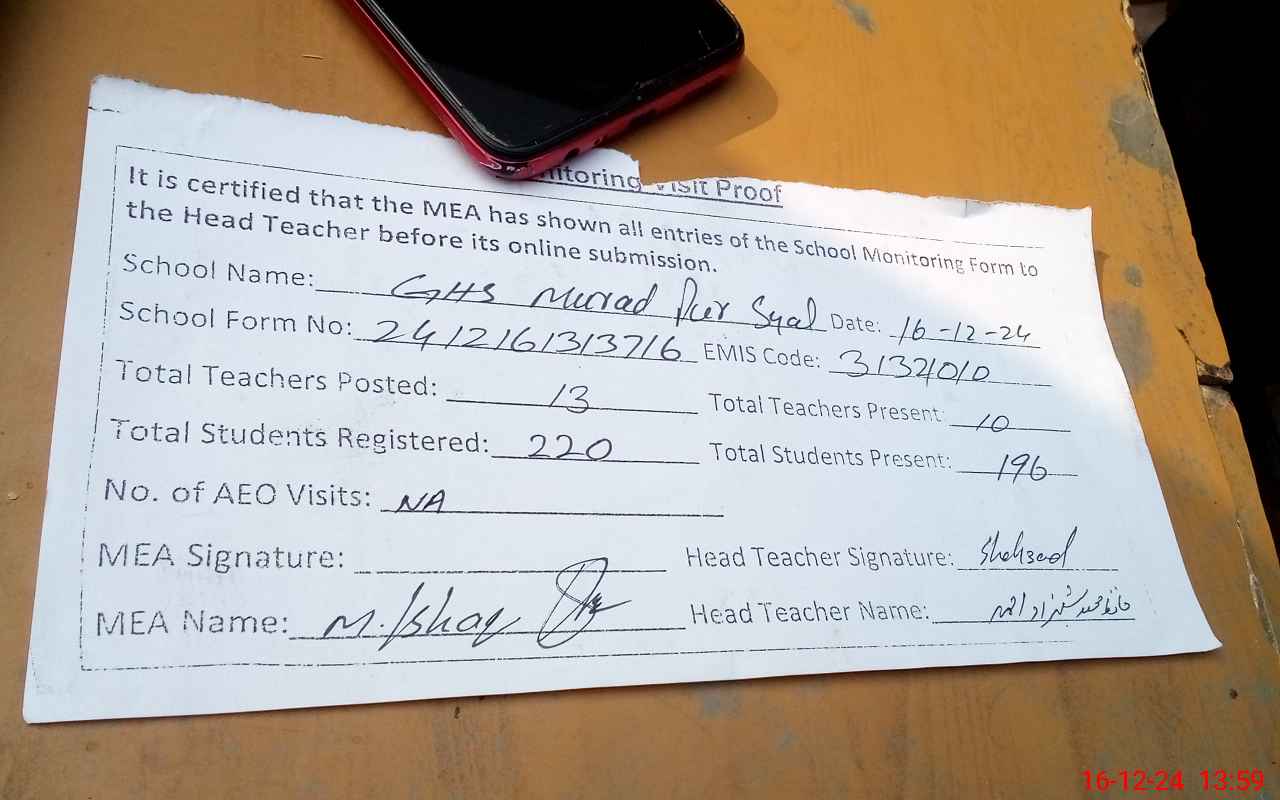 nitoring Visit Proof
It is certified that the MEA has shown all entries of the School Monitoring Form to
the Head Teacher before its online submission.
School Name: GHS Murad Pur Syal Date: 16-12-24
School Form No: 2412161313716 EMIS Code: 31321010
Total Teachers Posted: 13 Total Teachers Present: 10
Total Students Registered: 220 Total Students Present: 196
No. of AEO Visits: NA
MEA Signature: Head Teacher Signature: Shahzad
MEA Name: M. Ishaq Head Teacher Name: حافظ محمد شہزاد احمد
16-12-24 13:59